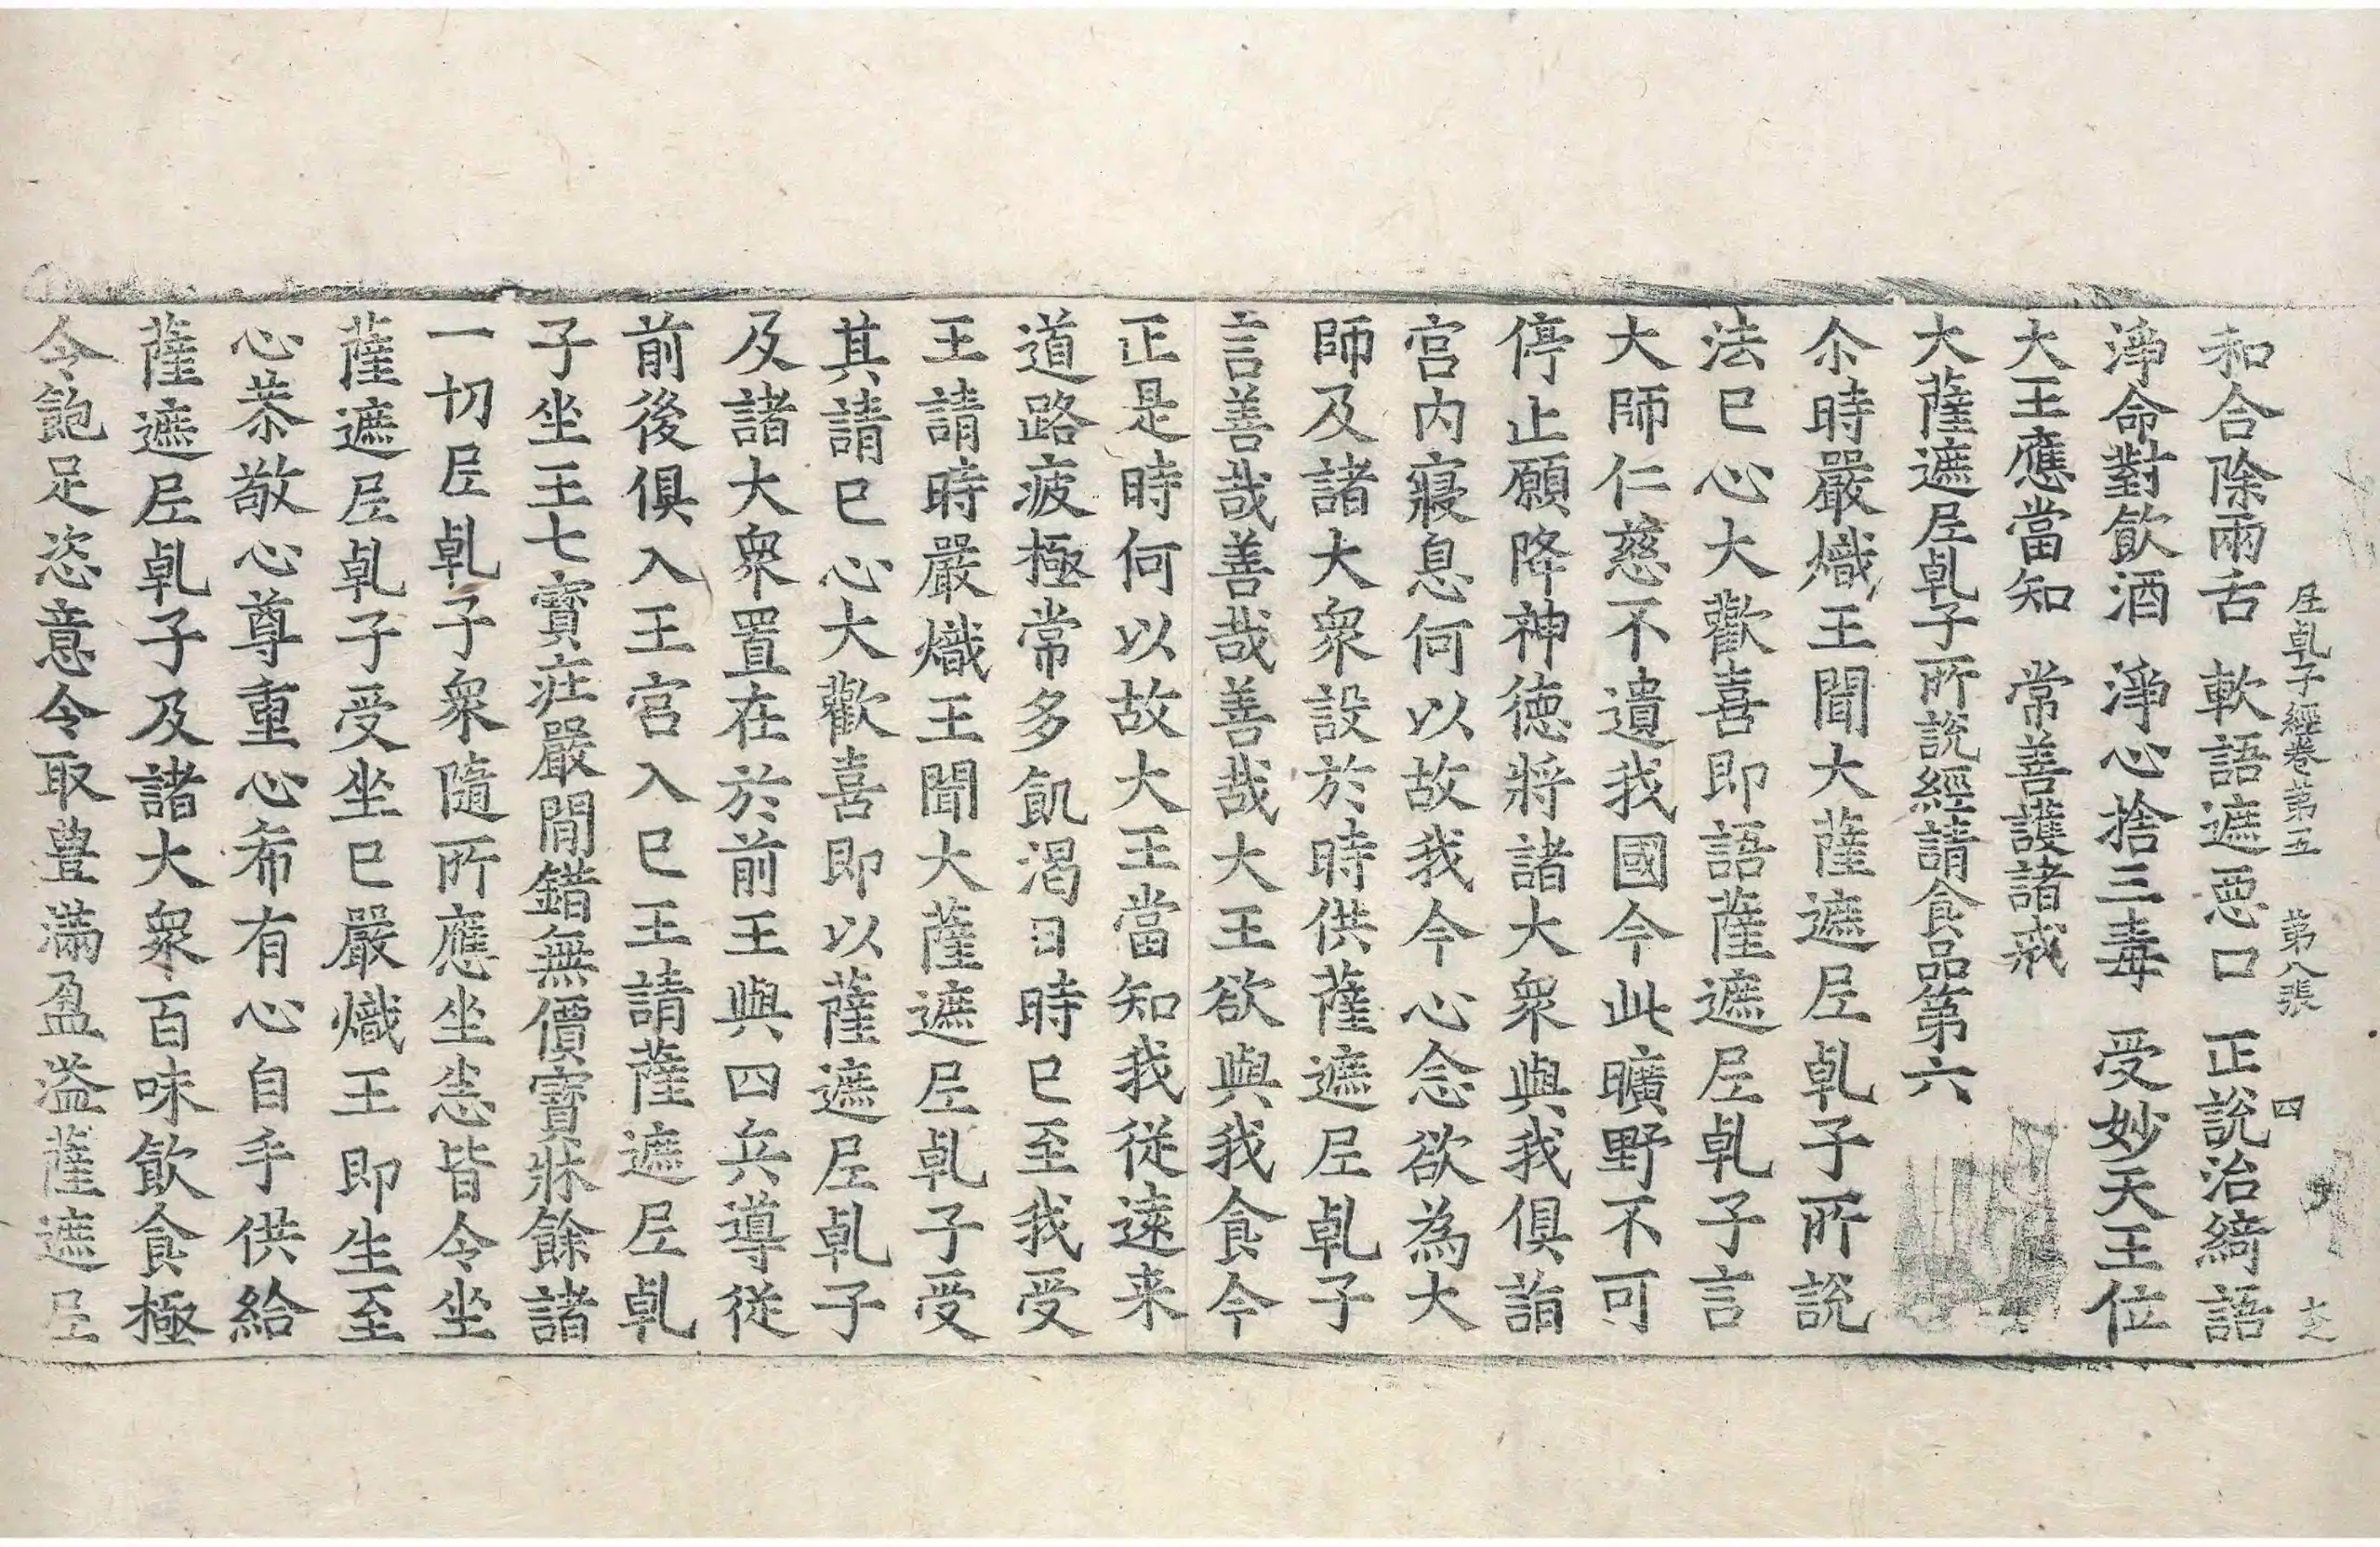 尼乹子經卷第五　第八張　四
和合除兩舌　軟語遮惡口　正說治綺語
淨命對飮酒　淨心捨三毒　受妙天王位
大王應當知　常善護諸戒
大薩遮尼乹子所說經請食品第六
尒時嚴熾王聞大薩遮尼乹子所說
法已心大歡喜即語薩遮尼乹子言
大師仁慈不遺我國今此曠野不可
停止願降神德將諸大衆與我俱詣
宮内寢息何以故我今心念欲為大
師及諸大衆設於時供薩遮尼乹子
言善哉善哉善哉大王欲與我食今
正是時何以故大王當知我從遠来
道路疲極常多飢渴日時已至我受
王請時嚴熾王聞大薩遮尼乹子受
其請已心大歡喜即以薩遮尼乹子
及諸大衆置在於前王與四兵導從
前後俱入王宮入已王請薩遮尼乹
子坐王七寶庄嚴閒錯無價寶牀餘諸
一切尼乹子衆隨所應坐悉皆令坐
薩遮尼乹子受坐已嚴熾王即生至
心恭敬心尊重心希有心自手供給
薩遮尼乹子及諸大衆百味飲食極
令飽足恣意令取豊滿盈溢薩遮尼